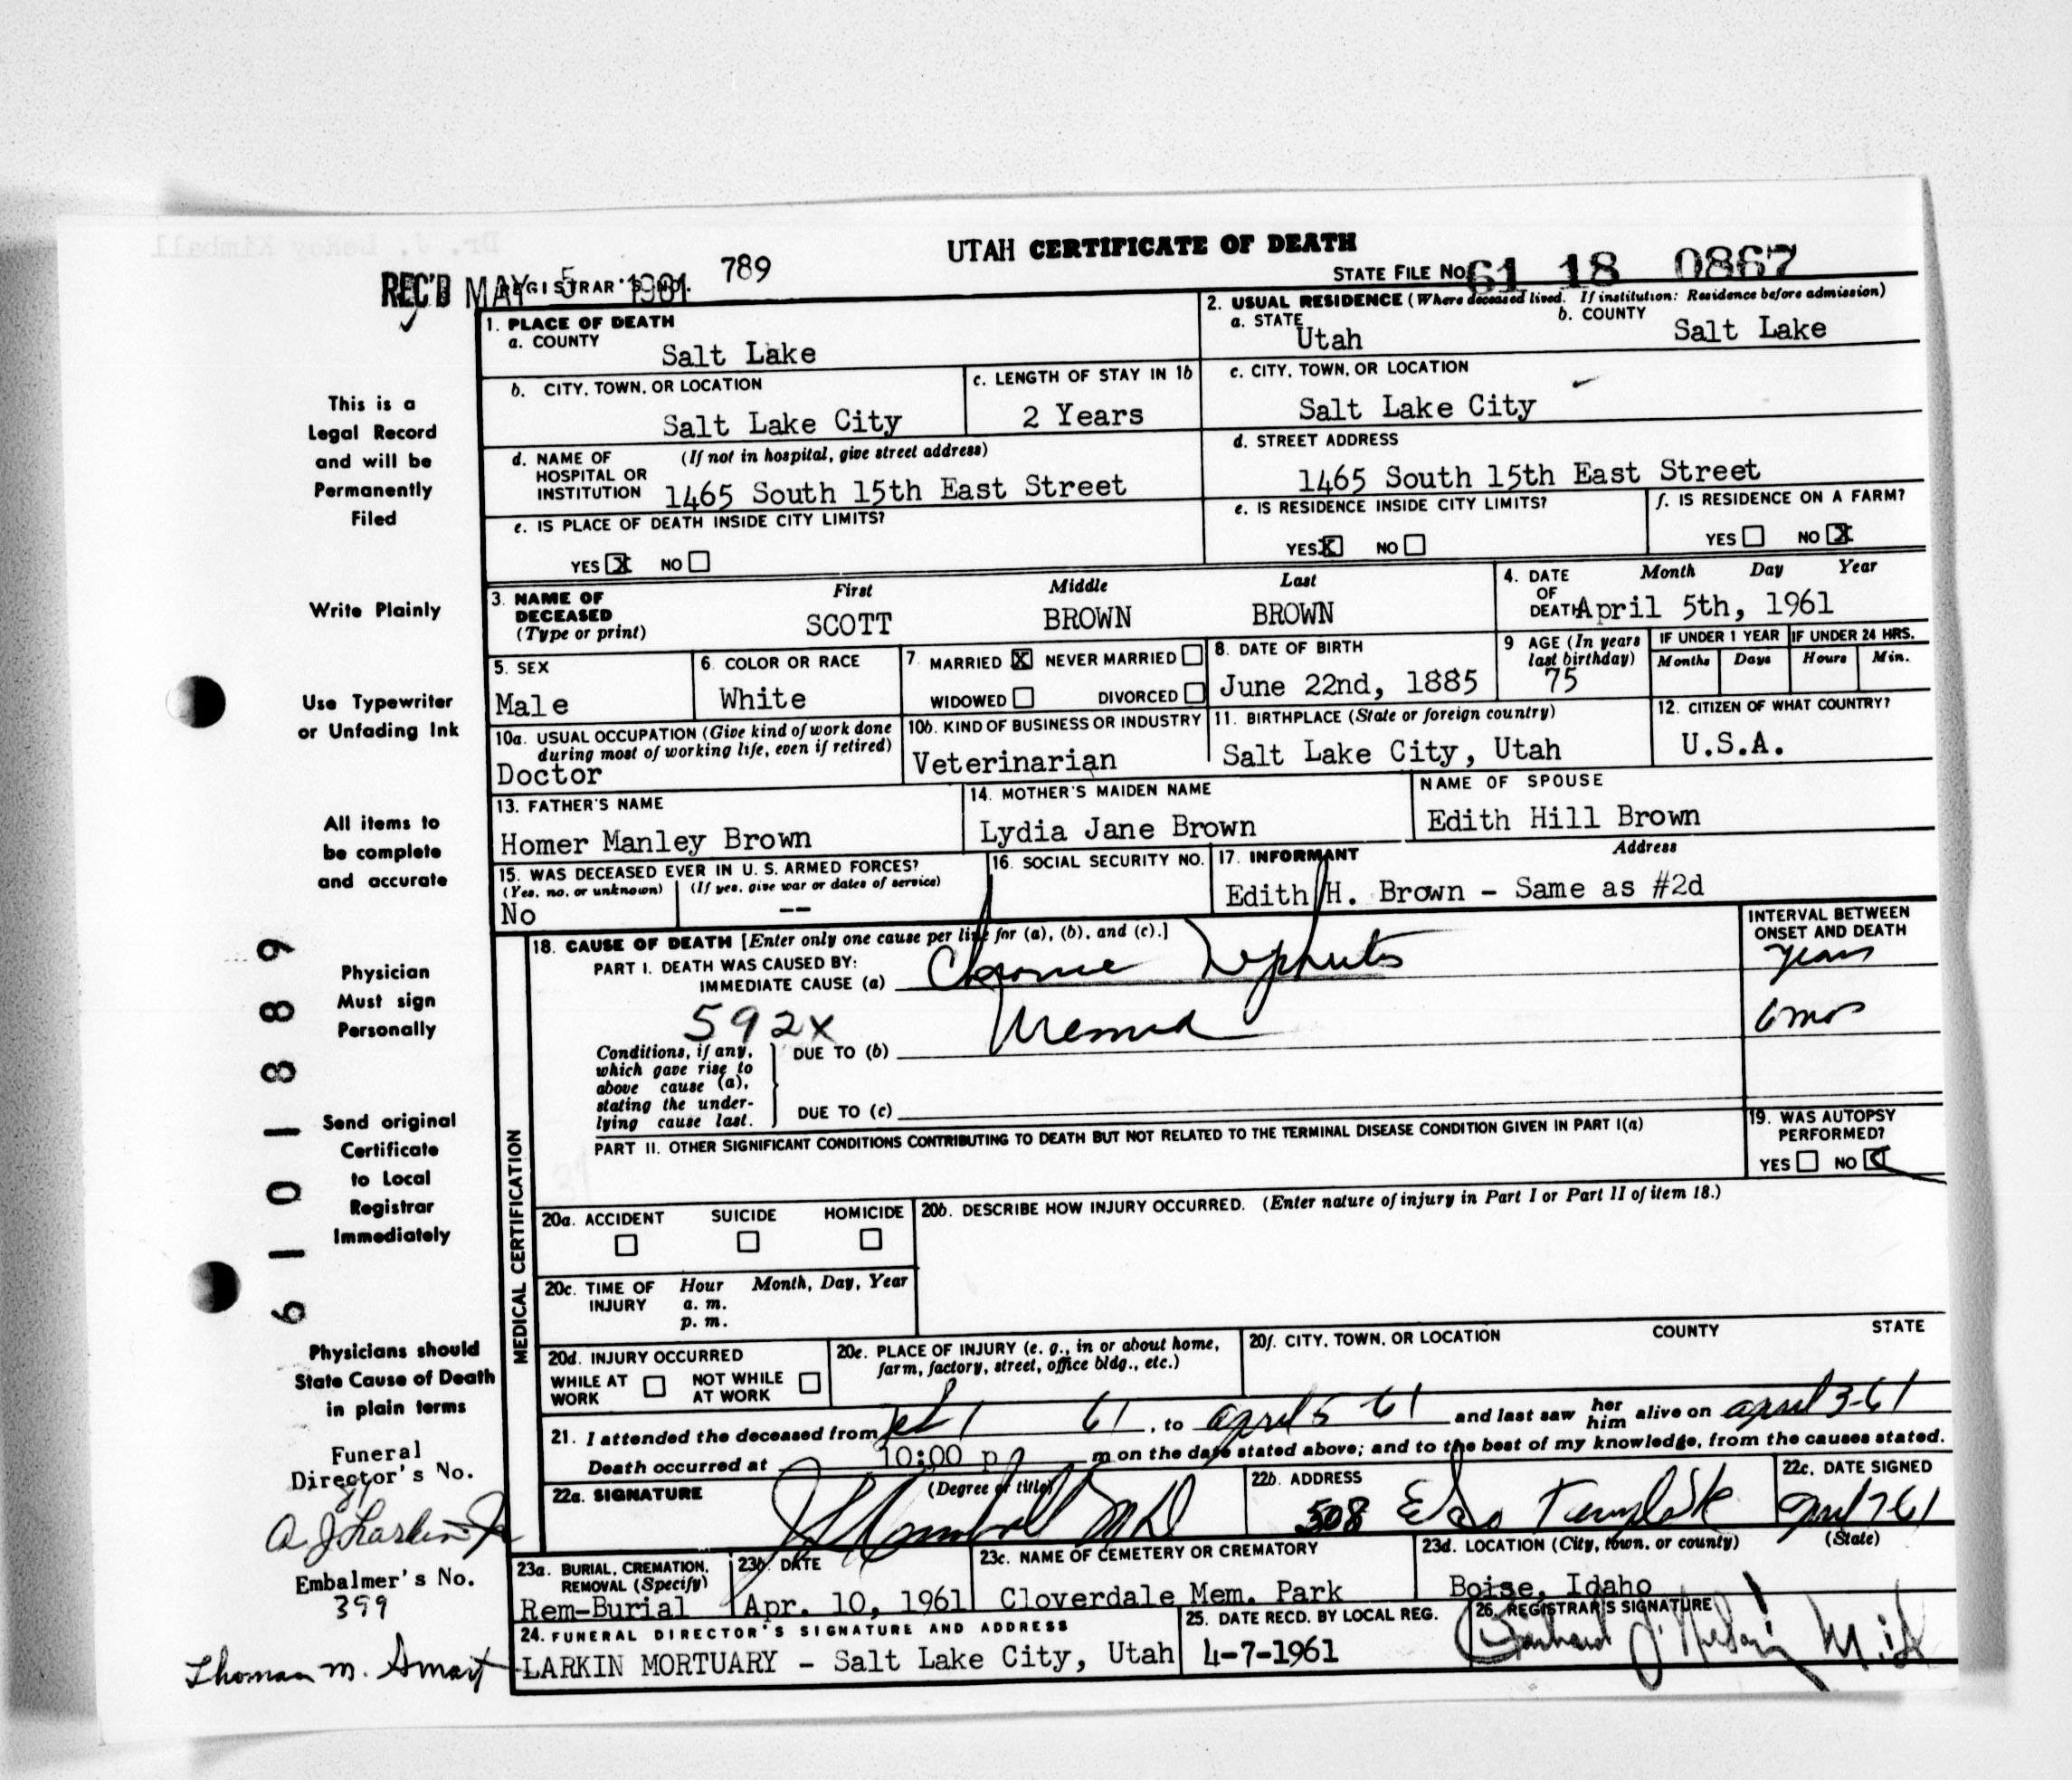 UTAH CERTIFICATE OF DEATH
REC'D MAY 5 1961 REGISTRAR'S NO. 789
STATE FILE NO. 61 18 0867
1. PLACE OF DEATH
a. COUNTY
Salt Lake
2. USUAL RESIDENCE (Where deceased lived. If institution: Residence before admission)
a. STATE Utah
b. COUNTY Salt Lake
b. CITY, TOWN, OR LOCATION
Salt Lake City
c. LENGTH OF STAY IN 1b
2 Years
c. CITY, TOWN, OR LOCATION
Salt Lake City
d. NAME OF HOSPITAL OR INSTITUTION (If not in hospital, give street address)
1465 South 15th East Street
d. STREET ADDRESS
1465 South 15th East Street
e. IS PLACE OF DEATH INSIDE CITY LIMITS?
YES X NO
e. IS RESIDENCE INSIDE CITY LIMITS?
YES X NO
f. IS RESIDENCE ON A FARM?
YES NO X
3. NAME OF DECEASED (Type or print)
First Middle Last
SCOTT BROWN BROWN
4. DATE OF DEATH Month Day Year
April 5th, 1961
5. SEX
Male
6. COLOR OR RACE
White
7. MARRIED X NEVER MARRIED
WIDOWED DIVORCED
8. DATE OF BIRTH
June 22nd, 1885
9 AGE (In years last birthday)
75
IF UNDER 1 YEAR
Months Days
IF UNDER 24 HRS.
Hours Min.
10a. USUAL OCCUPATION (Give kind of work done during most of working life, even if retired)
Doctor
10b. KIND OF BUSINESS OR INDUSTRY
Veterinarian
11. BIRTHPLACE (State or foreign country)
Salt Lake City, Utah
12. CITIZEN OF WHAT COUNTRY?
U.S.A.
13. FATHER'S NAME
Homer Manley Brown
14. MOTHER'S MAIDEN NAME
Lydia Jane Brown
NAME OF SPOUSE
Edith Hill Brown
15. WAS DECEASED EVER IN U. S. ARMED FORCES?
(Yes, no, or unknown) (If yes, give war or dates of service)
No --
16. SOCIAL SECURITY NO.
17. INFORMANT Address
Edith H. Brown - Same as #2d
MEDICAL CERTIFICATION
18. CAUSE OF DEATH [Enter only one cause per line for (a), (b), and (c).]
INTERVAL BETWEEN ONSET AND DEATH
PART I. DEATH WAS CAUSED BY:
IMMEDIATE CAUSE (a) Chronic Nephritis years
592X
Conditions, if any, which gave rise to above cause (a), stating the underlying cause last.
DUE TO (b) Uremia 6 mos
DUE TO (c)
PART II. OTHER SIGNIFICANT CONDITIONS CONTRIBUTING TO DEATH BUT NOT RELATED TO THE TERMINAL DISEASE CONDITION GIVEN IN PART I(a)
19. WAS AUTOPSY PERFORMED?
YES NO
20a. ACCIDENT SUICIDE HOMICIDE
20b. DESCRIBE HOW INJURY OCCURRED. (Enter nature of injury in Part I or Part II of item 18.)
20c. TIME OF INJURY Hour Month, Day, Year
a. m.
p. m.
20d. INJURY OCCURRED
WHILE AT WORK NOT WHILE AT WORK
20e. PLACE OF INJURY (e. g., in or about home, farm, factory, street, office bldg., etc.)
20f. CITY, TOWN, OR LOCATION COUNTY STATE
21. I attended the deceased from 1 61, to april 5 61 and last saw her him alive on april 3-61
Death occurred at 10:00 p m on the date stated above; and to the best of my knowledge, from the causes stated.
22a. SIGNATURE (Degree or title)
Kimball MD
22b. ADDRESS
508 E So Temple St.
22c. DATE SIGNED
April 7 61
23a. BURIAL, CREMATION, REMOVAL (Specify)
Rem-Burial
23b. DATE
Apr. 10, 1961
23c. NAME OF CEMETERY OR CREMATORY
Cloverdale Mem. Park
23d. LOCATION (City, town, or county) (State)
Boise, Idaho
24. FUNERAL DIRECTOR'S SIGNATURE AND ADDRESS
LARKIN MORTUARY - Salt Lake City, Utah
25. DATE RECD. BY LOCAL REG.
4-7-1961
26. REGISTRAR'S SIGNATURE
This is a
Legal Record
and will be
Permanently
Filed
Write Plainly
Use Typewriter
or Unfading Ink
All items to
be complete
and accurate
Physician
Must sign
Personally
Send original
Certificate
to Local
Registrar
Immediately
Physicians should
State Cause of Death
in plain terms
Funeral
Director's No.
A J Larkin Jr
Embalmer's No.
399
Thomas M. Smart
61018889
Dr. J. LeRoy Kimball